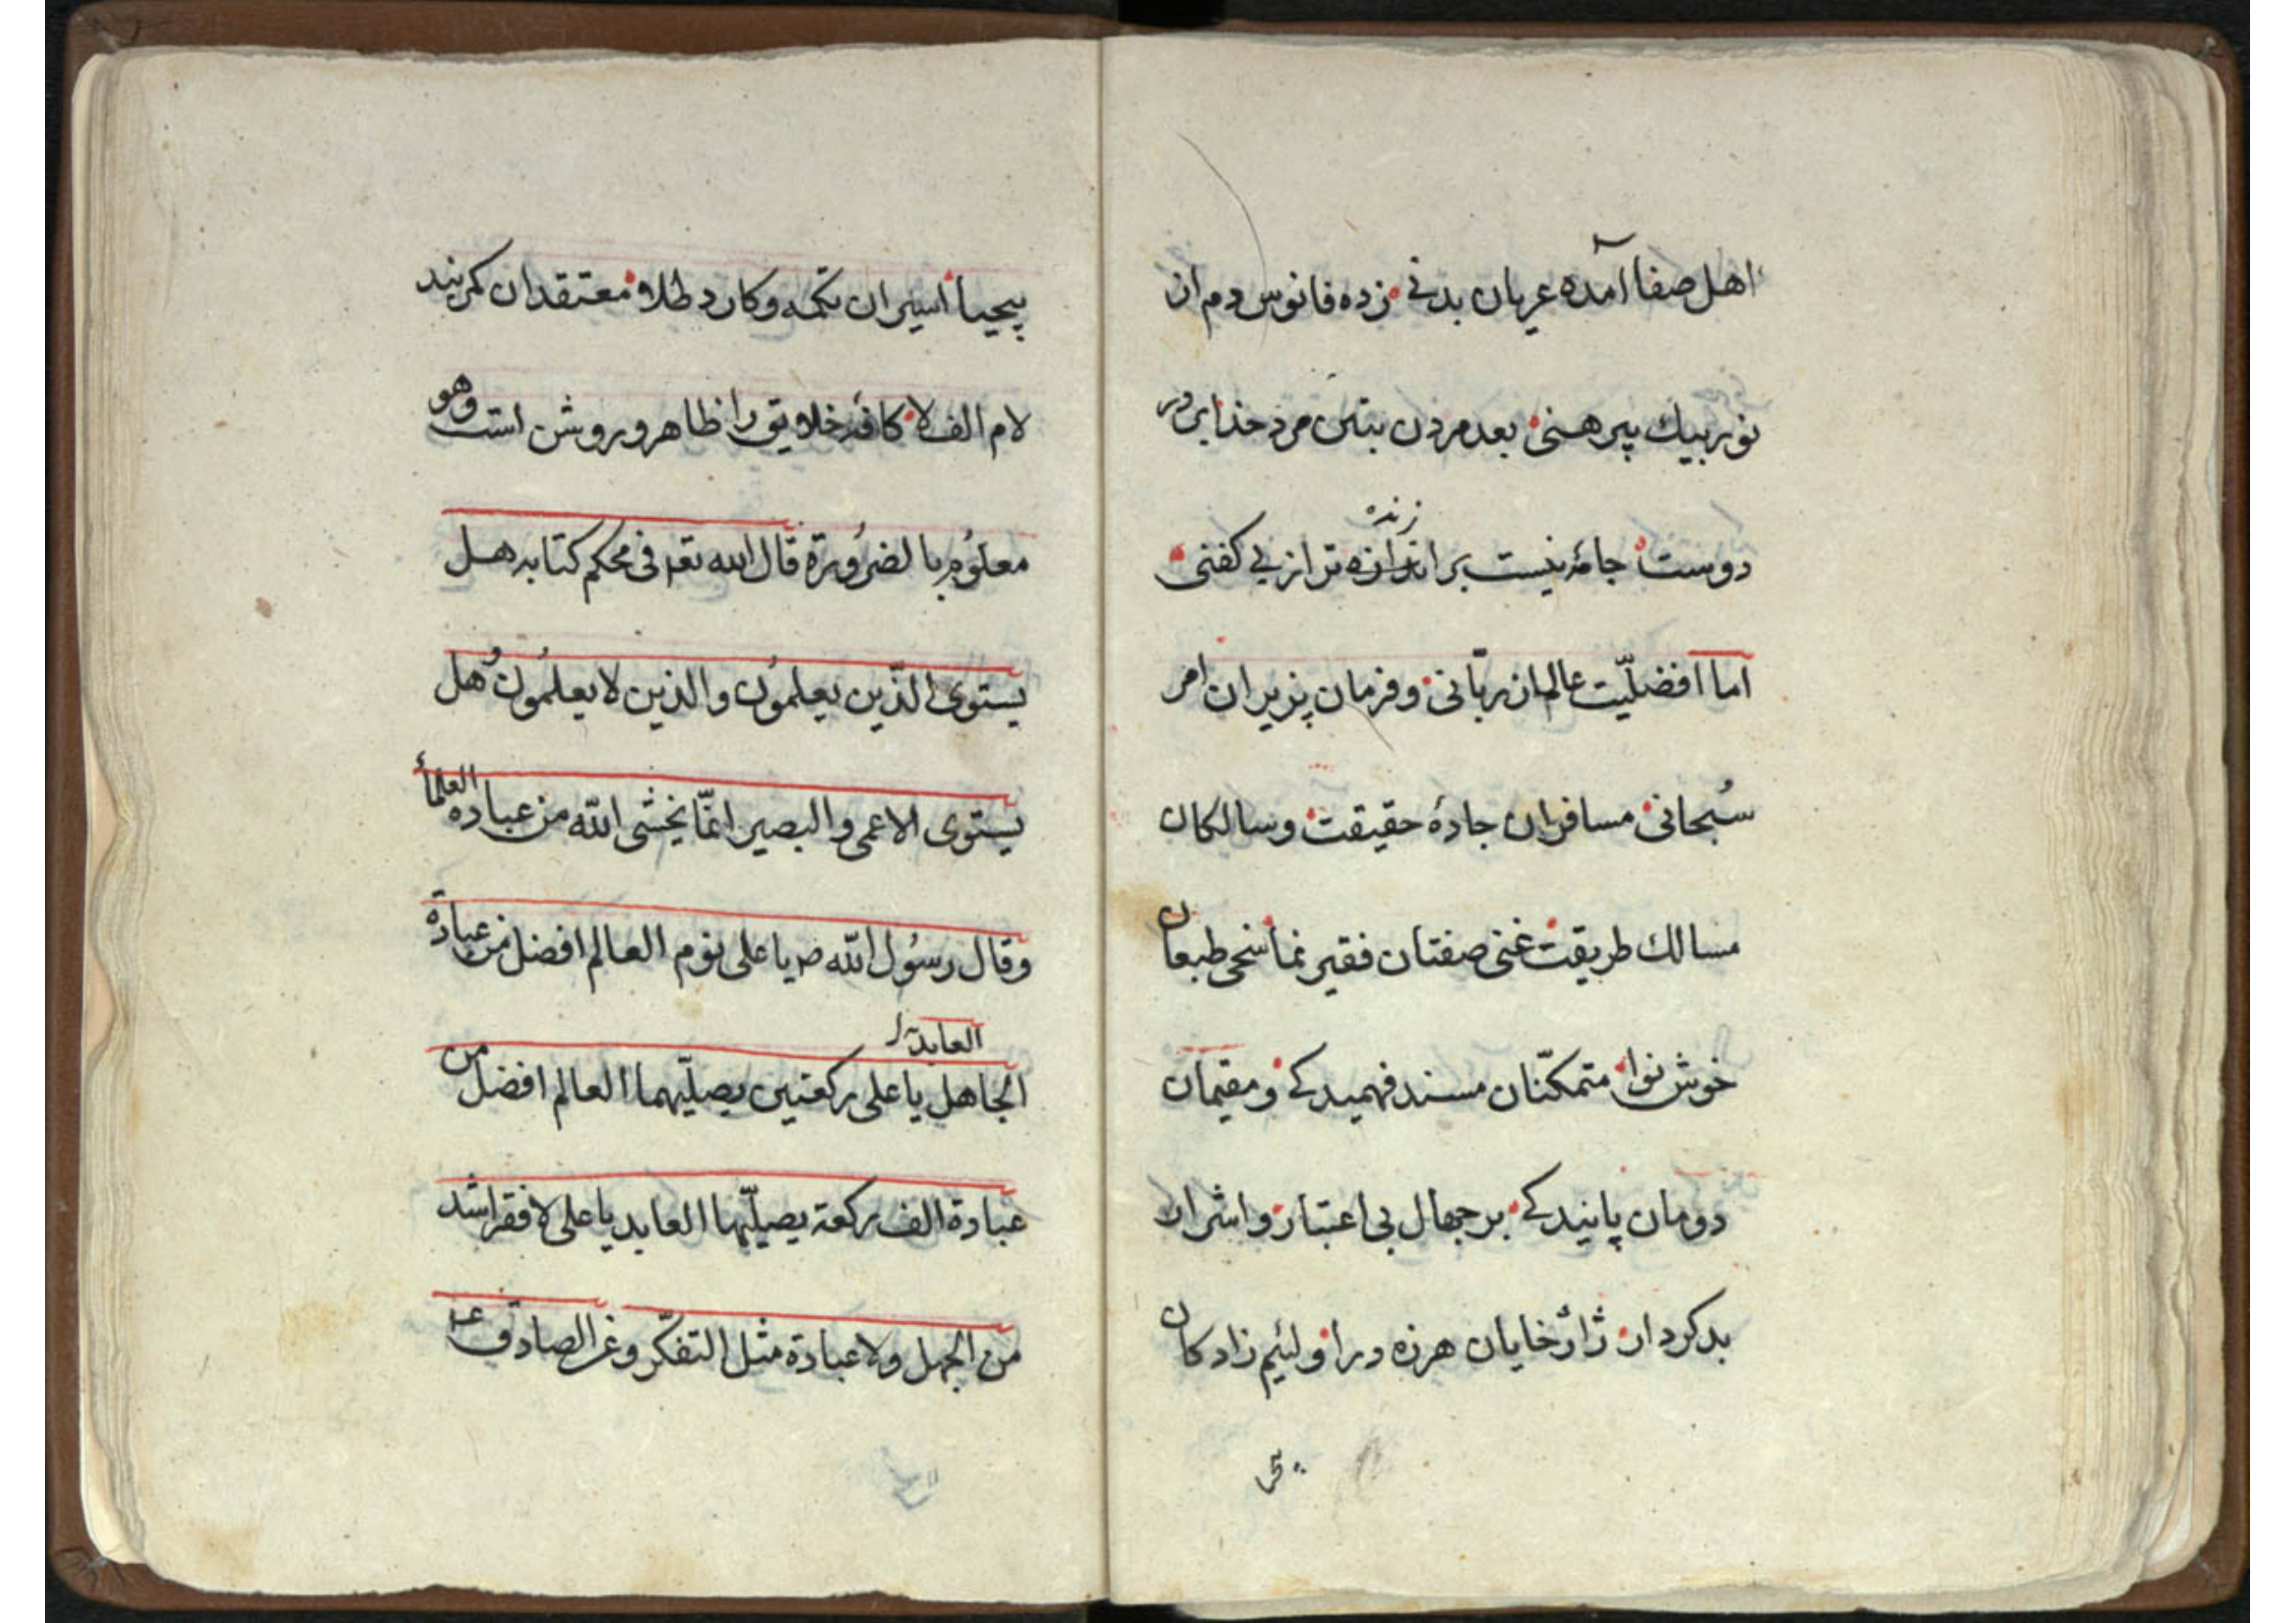 اهل صفا آمده عریان بدنی زده فانوس دم از
نور بیك پیرهنی بعد مردن بتن مرد خدای در
زنده
دوست جامۀ نیست برازنده تر از بی کفنی
اما افضلیّت عالمان ربّانی و فرمان پزیران امر
سُبحانی مسافران جادۀ حقیقت و سالکان
مسالك طریقت غنی صفتان فقیر نما سخی طبعان
خوش نوا متمکنّان مسند فهمیدکی و مقیمان
دومان پایندکی بر جهال بی اعتبار و اشرار
بد کردار ژاژ خایان هرزه درا و لئیم زادکان
بیحیا اسیران تکمه و کارد طلا و معتقدان کمربند
لام الف لا کافۀ خلایق را ظاهر و روشن است وهو
معلوُم بالضرُورة قال الله تعم فی محکم کتابه هل
یستوی الذّین یعلموُن والذین لا یعلموُن وُهل
یستوی الاعمی والبصیر انمّا یخشی الله من عباده العلمأ
وقال رسوُل الله ص یا علی نوم العالم افضل من عبادة
العابد
الجاهل یا علی رکعتین یصلّیهما العالم افضل من
عبادة الف رکعة یصلّیها العابد یا علی لا فقر اشد
من الجهل ولا عبادة مثل التفکّر وعن الصادق ع